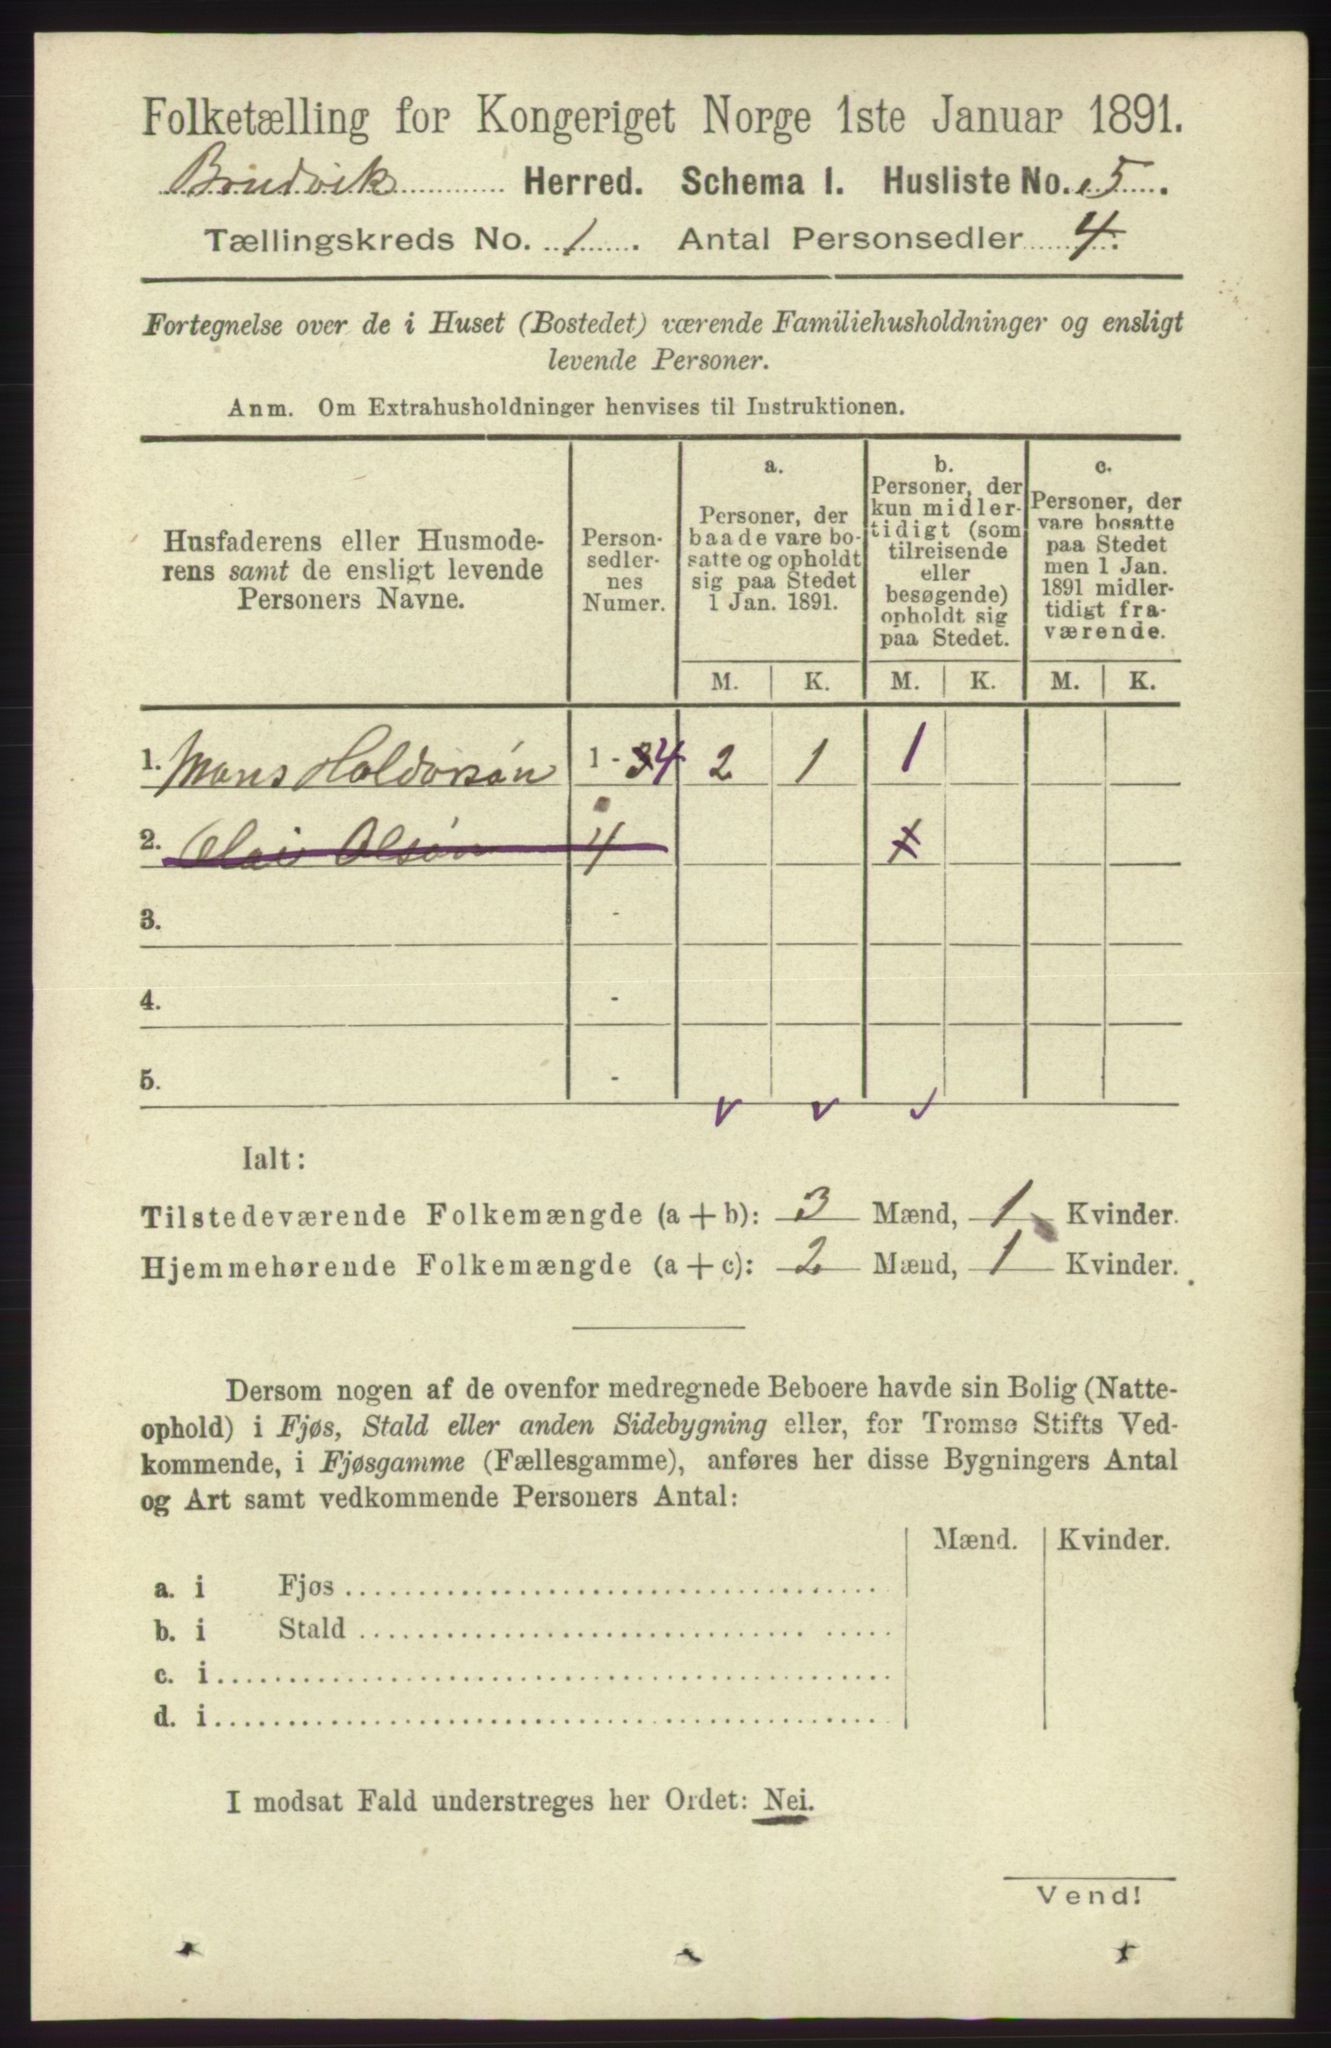 Folketælling for Kongeriget Norge 1ste Januar 1891.
Brudvik Herred. Schema I. Husliste No. 5.
Tællingskreds No. 1. Antal Personsedler 4.
Fortegnelse over de i Huset (Bostedet) værende Familiehusholdninger og ensligt
levende Personer.
Anm. Om Extrahusholdninger henvises til Instruktionen.
Husfaderens eller Husmode-
rens samt de ensligt levende
Personers Navne.
Person-
sedler-
nes
Numer.
a.
Personer, der
baade vare bo-
satte og opholdt
sig paa Stedet
1 Jan. 1891.
b.
Personer, der
kun midler-
tidigt (som
tilreisende
eller
besøgende)
opholdt sig
paa Stedet.
c.
Personer, der
vare bosatte
paa Stedet
men 1 Jan.
1891 midler-
tidigt fra-
værende.
M. K. M. K. M. K.
1. Mons Haldorsøn 1 - 34 2 1 1
2. Olai Olsøn 4
3. -
4. -
5. -
Ialt:
Tilstedeværende Folkemængde (a + b): 3 Mænd, 1 Kvinder.
Hjemmehørende Folkemængde (a + c): 2 Mænd, 1 Kvinder.
Dersom nogen af de ovenfor medregnede Beboere havde sin Bolig (Natte-
ophold) i Fjøs, Stald eller anden Sidebygning eller, for Tromsø Stifts Ved-
kommende, i Fjøsgamme (Fællesgamme), anføres her disse Bygningers Antal
og Art samt vedkommende Personers Antal:
Mænd. Kvinder.
a. i Fjøs
b. i Stald
c. i
d. i
I modsat Fald understreges her Ordet: Nei.
Vend!